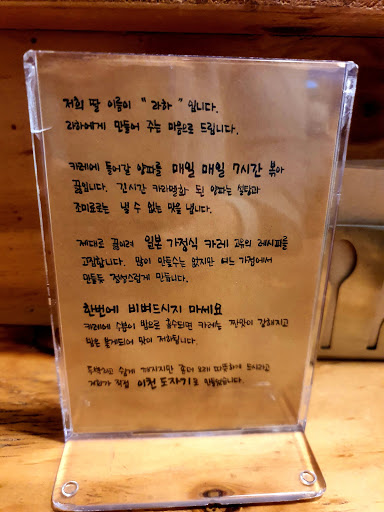 저희 딸 이름이 " 라하 " 입니다.
라하에게 만들어 주는 마음으로 드립니다.
카레에 들어갈 양파를 매일 매일 7시간 볶아
끓입니다. 긴시간 카라멜화 된 양파는 설탕과
조미료로는 낼 수 없는 맛을 냅니다.
제대로 끓이려 일본 가정식 카레 고유의 레시피를
고집합니다. 많이 만들수는 없지만 어느 가정에서
만들듯 정성스럽게 만듭니다.
한번에 비벼드시지 마세요
카레에 수분이 밥으로 흡수되면 카레는 짠맛이 강해지고
밥은 불게되어 맛이 저하됩니다.
쉽게 깨지지만 좀더 오래 따뜻하게 드시라고
저희가 직접 이천 도자기로 만들었습니다.